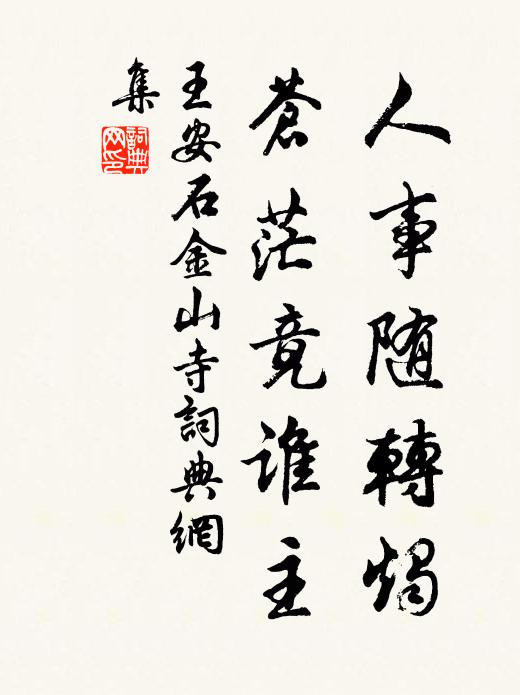 人事随轉燭
蒼茫竟谁主
王安石金山寺詞典網
集
詞典
网印